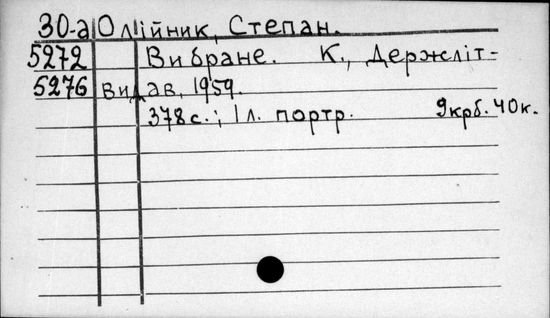 30-а Олійник, Степан.
5272 Вибране. К., Держліт-
5276 видав, 1959.
378с.; 1 л. портр. 9крб. 40к.